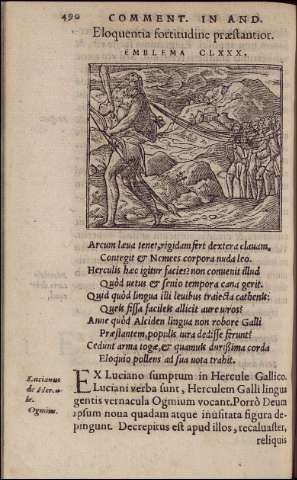 490 COMMENT. IN AND.
Eloquentia fortitudine præstantior.
EMBLEMA CLXXX.
Arcum læua tenet, rigidam fert dextera clauam,
Contegit & Nemees corpora nuda leo.
Herculis hæc igitur facies? non conuenit illud
Quòd uetus & senio tempora cana gerit.
Quid quòd lingua illi leuibus traiecta cathenis:
Queis fissa facileis allicit aure uiros?
Anne quòd Alciden lingua non robore Galli
Præstantem, populis iura dedisse ferunt?
Cedunt arma togæ, & quamuis durissima corda
Eloquio pollens ad sua uota trahit.
EX Luciano sumptum in Hercule Gallico.
Lucianus
Luciani verba sunt, Herculem Galli lingua
de Hercu-
le.
gentis vernacula Ogmium vocant. Porrò Deum
Ogmius.
ipsum noua quadam atque inusitata figura de-
pingunt. Decrepitus est apud illos, recaluaster,
reliquis